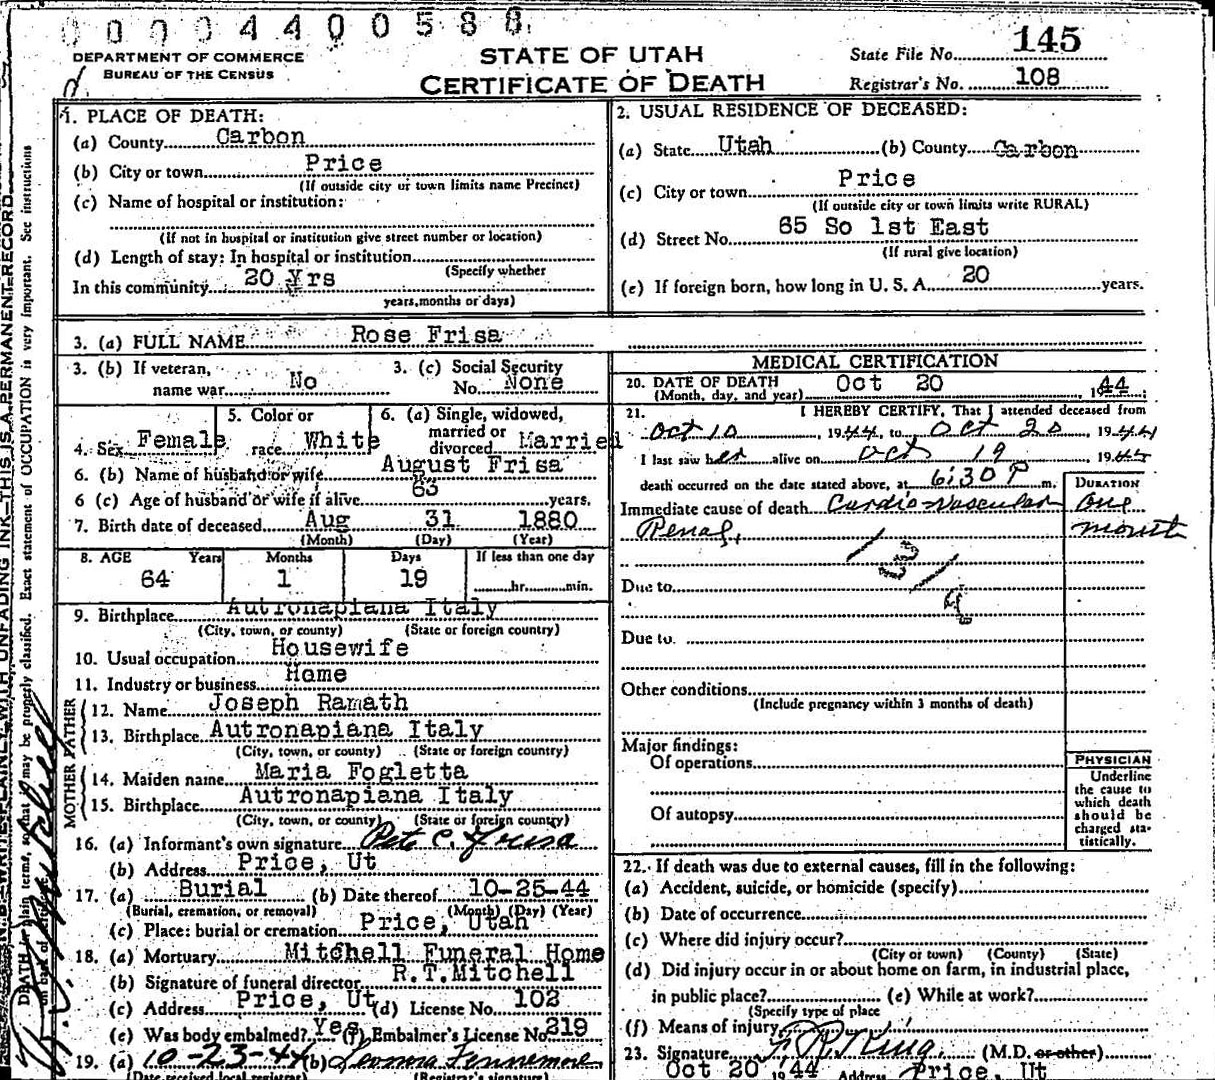 0 0 0 0 4 4 0 0 5 8 8
DEPARTMENT OF COMMERCE
BUREAU OF THE CENSUS
STATE OF UTAH
CERTIFICATE OF DEATH
State File No. 145
Registrar's No. 108
1. PLACE OF DEATH:
(a) County Carbon
(b) City or town Price
(If outside city or town limits name Precinct)
(c) Name of hospital or institution:
(If not in hospital or institution give street number or location)
(d) Length of stay: In hospital or institution
(Specify whether
In this community 20 Yrs
years, months or days)
2. USUAL RESIDENCE OF DECEASED:
(a) State Utah (b) County Carbon
(c) City or town Price
(If outside city or town limits write RURAL)
(d) Street No. 65 So 1st East
(If rural give location)
(e) If foreign born, how long in U. S. A. 20 years.
3. (a) FULL NAME Rose Frisa
3. (b) If veteran, name war No
3. (c) Social Security No. None
4. Sex Female
5. Color or race White
6. (a) Single, widowed, married or divorced Married
6. (b) Name of husband or wife August Frisa
6 (c) Age of husband or wife if alive 63 years.
7. Birth date of deceased Aug 31 1880
(Month) (Day) (Year)
8. AGE Years Months Days If less than one day
64 1 19 hr. min.
9. Birthplace Autronapiana Italy
(City, town, or county) (State or foreign country)
10. Usual occupation Housewife
11. Industry or business Home
FATHER
12. Name Joseph Ramath
13. Birthplace Autronapiana Italy
(City, town, or county) (State or foreign country)
MOTHER
14. Maiden name Maria Fogletta
15. Birthplace Autronapiana Italy
(City, town, or county) (State or foreign country)
16. (a) Informant's own signature Pete C. Frisa
(b) Address Price, Ut
17. (a) Burial (b) Date thereof 10-25-44
(Burial, cremation, or removal) (Month) (Day) (Year)
(c) Place: burial or cremation Price, Utah
18. (a) Mortuary Mitchell Funeral Home
(b) Signature of funeral director R.T.Mitchell
(c) Address Price, Ut (d) License No. 102
(e) Was body embalmed? Yes (f) Embalmer's License No. 219
19. (a) 10-23-44 (b) Leonora Fennemore
(Date received local registrar) (Registrar's signature)
MEDICAL CERTIFICATION
20. DATE OF DEATH Oct 20, 1944
(Month, day, and year)
21. I HEREBY CERTIFY, That I attended deceased from
Oct 10, 1944, to Oct 20, 1944
I last saw her alive on Oct 19 1944
death occurred on the date stated above, at 6:30 P m.
DURATION
Immediate cause of death Cardio-vascular one
Renal, month
131 a
Due to
Due to.
Other conditions
(Include pregnancy within 3 months of death)
Major findings:
Of operations
Of autopsy
PHYSICIAN
Underline the cause to which death should be charged statistically.
22. If death was due to external causes, fill in the following:
(a) Accident, suicide, or homicide (specify)
(b) Date of occurrence
(c) Where did injury occur?
(City or town) (County) (State)
(d) Did injury occur in or about home on farm, in industrial place,
in public place? (e) While at work?
(Specify type of place
(f) Means of injury
23. Signature F. R. King (M.D. or other)
Oct 20 1944 Address Price, Ut
N. B.—WRITE PLAINLY WITH UNFADING INK—THIS IS A PERMANENT RECORD.
DEATH in plain terms, so that it may be properly classified. Exact statement of OCCUPATION is very important. See instructions
on back of